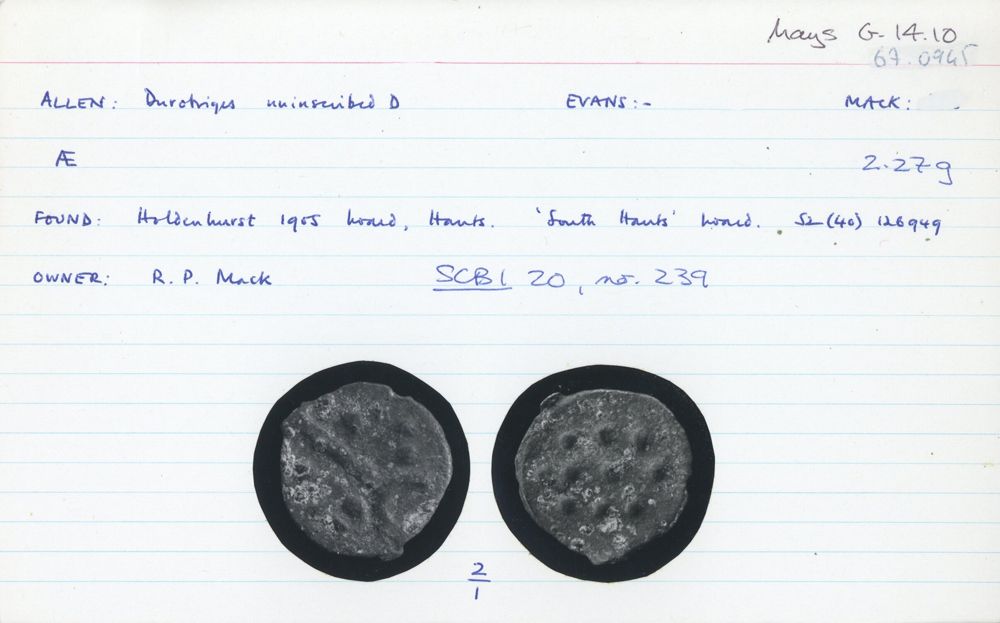 Mays G-14.10
67.0945
ALLEN: Durotriges uninscribed D EVANS:- MACK:
Æ 2.27g
FOUND: Holdenhurst 1905 hoard, Hants. 'South Hants' hoard. SZ (40) 126949
OWNER: R. P. Mack SCBI 20, no. 239
2
1